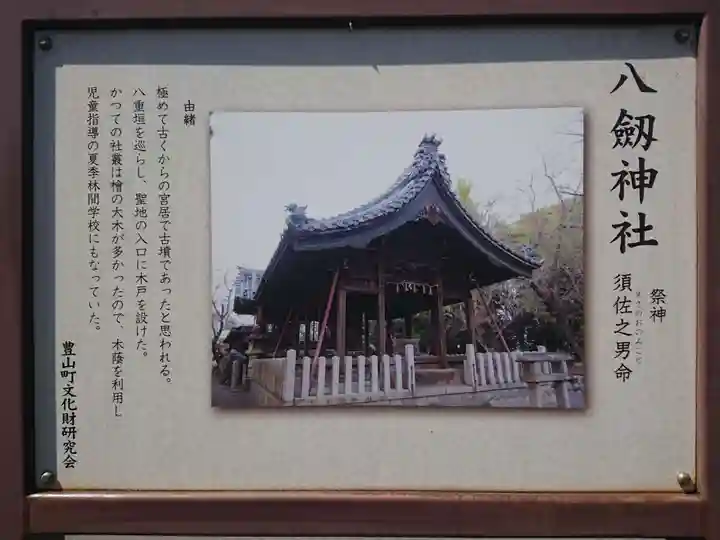 八劔神社
祭神
須佐之男命
すさのおのみこと
由緒
極めて古くからの宮居で古墳であったと思われる。
八重垣を巡らし、聖地の入口に木戸を設けた。
かつての社叢は檜の大木が多かったので、木蔭を利用し
児童指導の夏季林間学校にもなっていた。
豊山町文化財研究会